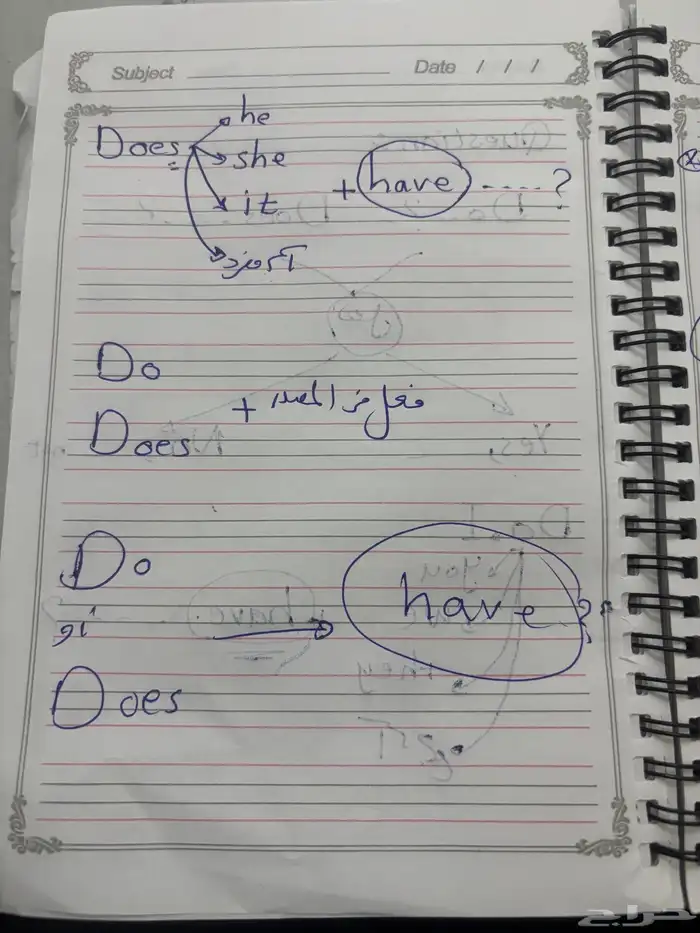 Subject Date / / /
Does he
she
it + have ..... ?
آ مفرد
Do
Does + فعل من المصدر
Do
أو have ?
Does
حراج